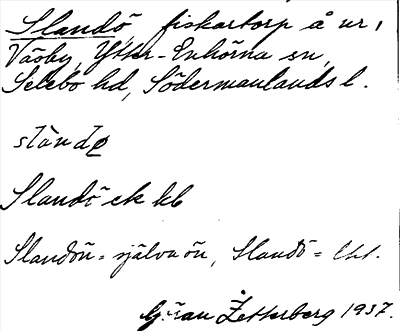 Slandö, fiskartorp å ur,
Väsby, Ytter-Enhörna sn,
Selebo hd, Södermanlands l.
slàndø
Slandö ek kb
Slandön = själva ön, Slandö = lht.
Göran Zetterberg 1937.